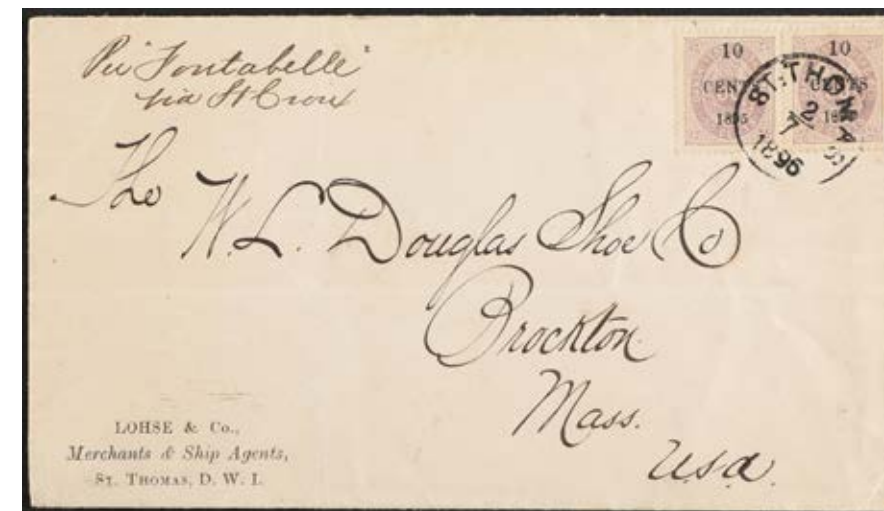 Per "Fontabelle"
via St Croix
10
CENTS
1895
10
CENTS
18
ST. THOMAS
2
7
1896
The
W. L. Douglas Shoe Co
Brockton
Mass.
U.S.A.
LOHSE & Co.,
Merchants & Ship Agents,
ST. THOMAS, D. W. I.